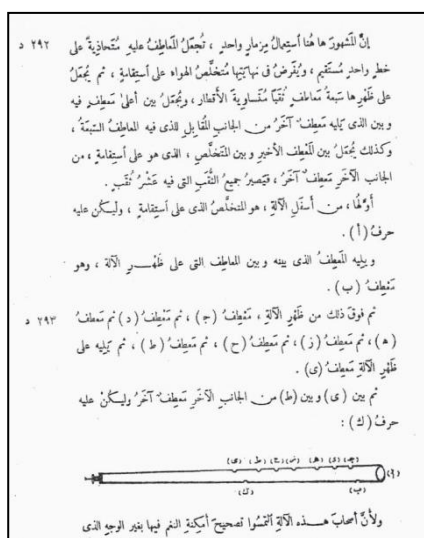 إنّ المشهورَ ها هُنا استِعمالُ مِزمارٍ واحدٍ ، تُجعَلُ المَعاطِفُ عليهِ مُتَحاذِيةً على ٢٩٢ د
خطٍّ واحدٍ مُستَقيمٍ ، ويُفرَضُ فى نهايَتِها مُتخلَّصُ الهواءِ على استِقامةٍ ، ثم يُجعَلُ
على ظَهْرِها سَبعةُ مَعاطفَ ثُقَبًا مُتَساويةَ الأقطارِ ، ويُجعَلُ بين أعلى مَعطِفٍ فيه
وبين الذى يَليه مَعطِفٌ آخَرُ من الجانبِ المُقابِلِ للذى فيه المعاطِفُ السّبعةُ ،
وكذلك يُجعَلُ بين المَعطِفِ الأخيرِ وبين المتخلَّصِ ، الذى هو على استِقامةٍ ، من
الجانبِ الآخَرِ مَعطِفٌ آخَرُ ، فيَصيرُ جميعُ الثُّقَبِ التى فيه عَشْرُ ثُقَبٍ .
أوّلُها ، من أسفَلِ الآلةِ ، هو المتخلَّصُ الذى على استِقامةٍ ، وليَكُن عليه
حرفُ ( أ ) .
ويليه المَعطِفُ الذى بينه وبين المعاطِفِ التى على ظَهْرِ الآلة ، وهو
مَعْطِفُ ( ب ) .
ثم فوقَ ذلك من ظَهْرِ الآلةِ ، مَعْطِفُ ( ج ) ، ثم مَعْطِفُ ( د ) ثم مَعطفُ ٢٩٣ د
( ه ) ، ثم مَعطِفُ ( ز ) ، ثم مَعطفُ ( ح ) ، ثم مَعطِفُ ( ط ) ، ثم يَليه على
ظَهْرِ الآلةِ مَعطِفُ ( ى ) .
ثم بين ( ى ) وبين ( ط ) من الجانبِ الآخَرِ مَعطِفٌ آخَرُ وليَكُنْ عليه
حرفُ ( ك ) :
(ى) (ط) (ح) (ز) (ه) (د) (ج)
(أ)
(ك) (ب)
ولأنّ أصحابَ هذه الآلةِ التَمَسُوا تصحيحَ أمكِنةِ النغمِ فيها بغيرِ الوجهِ الذى